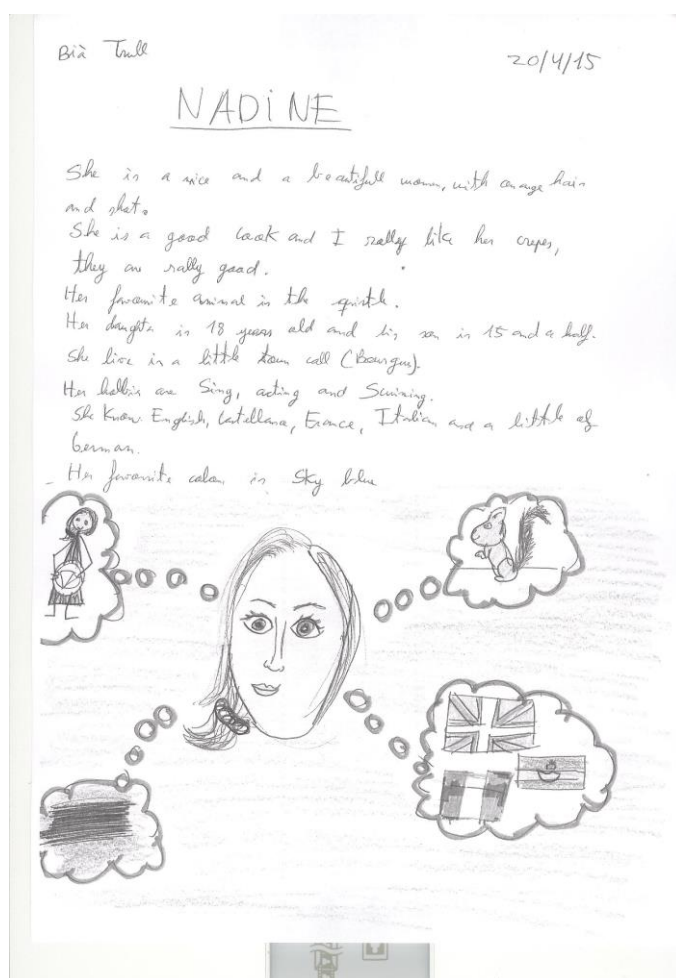 Bià Trull
20/4/15
NADINE
She is a nice and a beautifull woman, with orange hair
and shot.
She is a good cook and I rally like her crepes,
they are rally good.
Her favourite animal is the
Her daughter is 18 years old and his son is 15 and a half.
She live in a little town call (Bourgus).
Her hobbis are Sing, acting and Swiming.
She Know English, Castellano, France, Italian and a little of
German.
- Her favourite colour is Sky blue